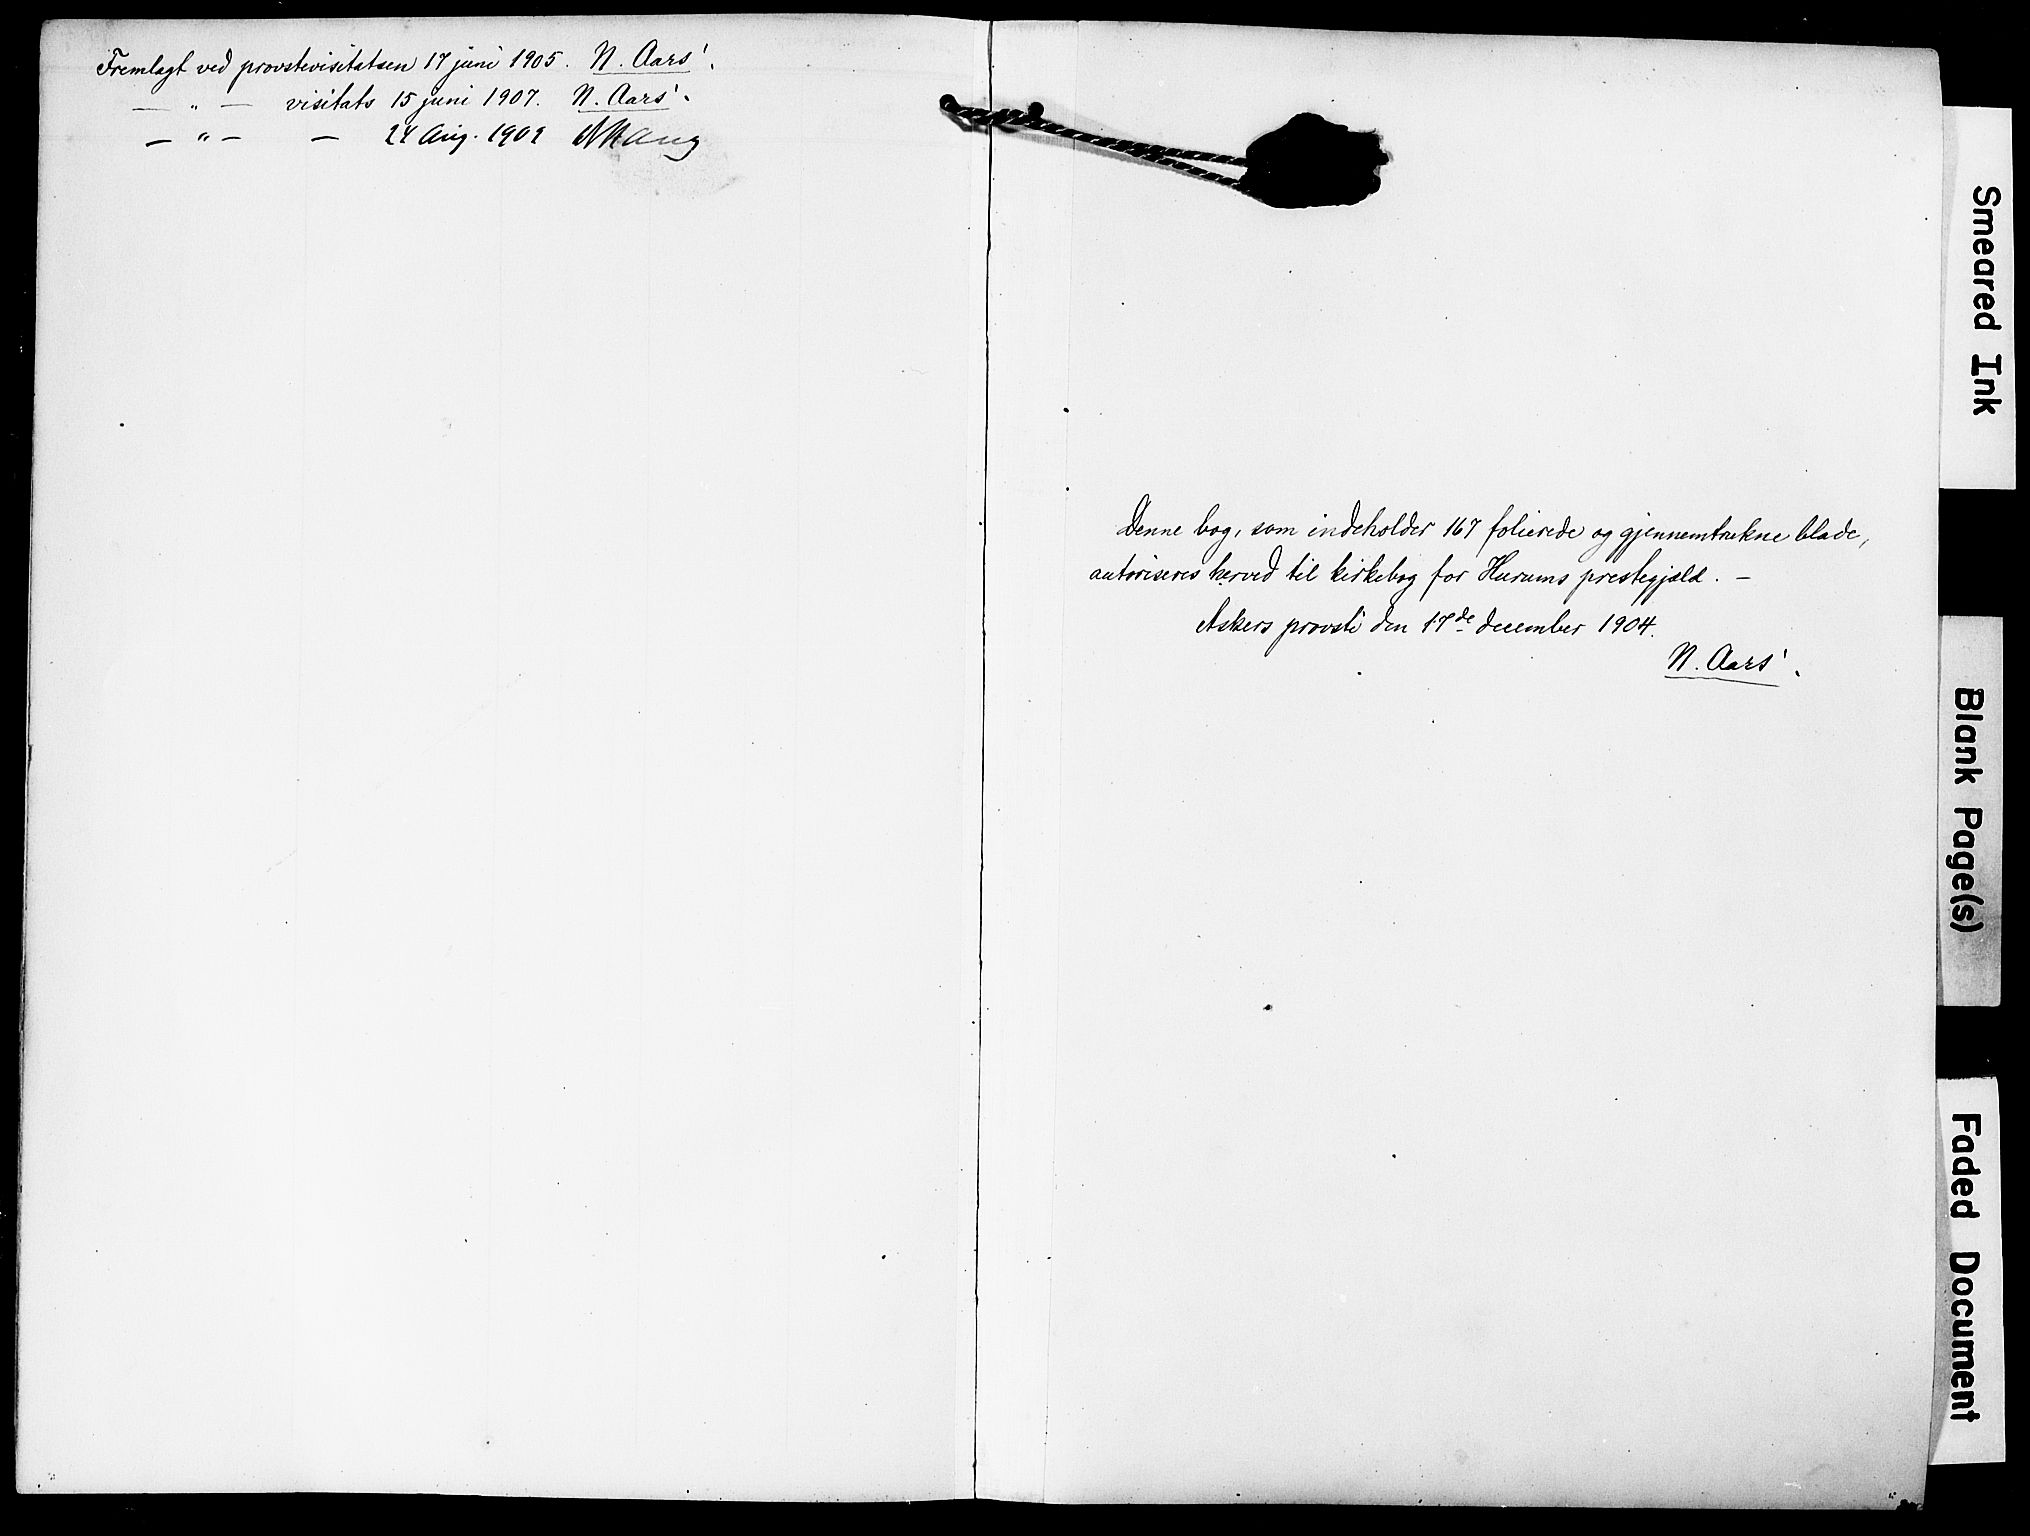 Fremlagt ved provstevisitatsen 17 juni 1905. N. Aars.
— " — visitats 15 juni 1907. N. Aars.
— " — — 24 Aug. 1909
Denne bog, som indeholder 167 folierede og gjennemtrukne blade,
autoriseres herved til kirkebog for Hurums prestegjæld. —
Askers provsti den 17de december 1904.
N. Aars.
Smeared Ink
Blank Page(s)
Faded Document